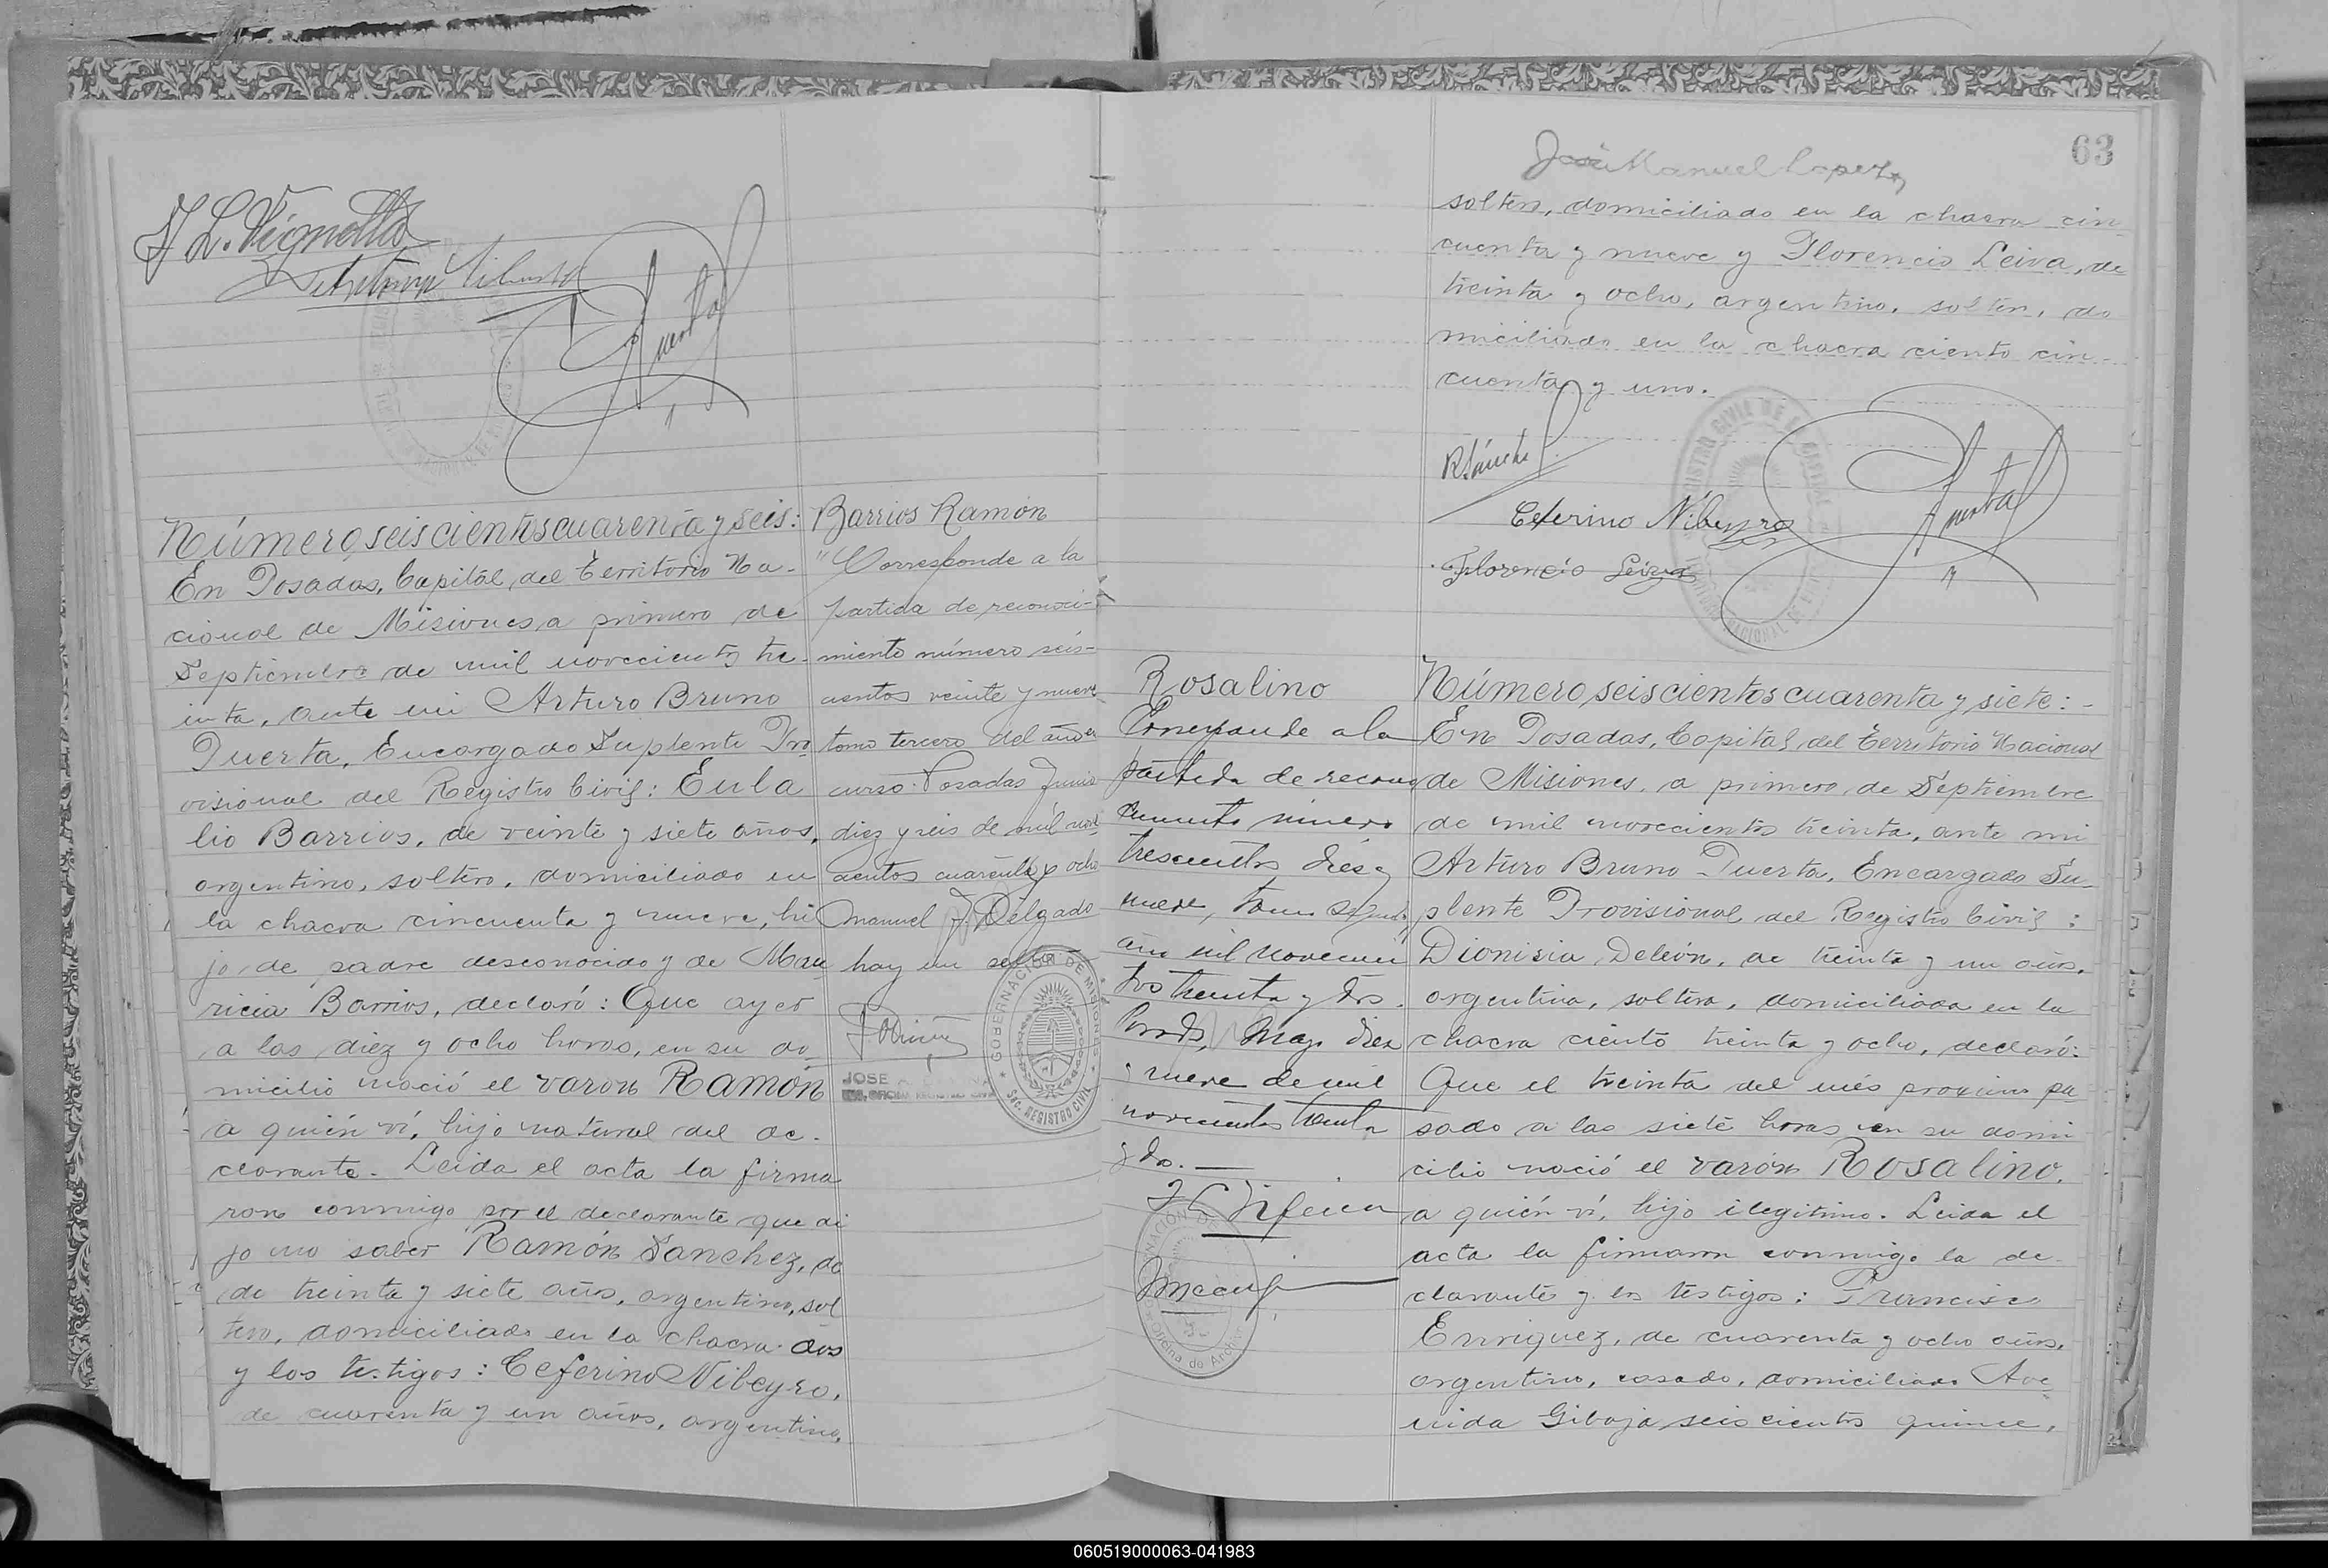 Número seiscientos cuarenta y seis:
En Posadas, Capital del Territorio Na-
cional de Misiones, a primero de
Septiembre de mil novecientos tre-
inta, ante mi Arturo Bruno
Puerta, Encargado Suplente Pro
visional del Registro Civil: Eula
lio Barrios, de veinte y siete años,
argentino, soltero, domiciliado en
la chacra cincuenta y nueve, hi
jo de padre desconocido y de Mau
ricia Barrios, declaró: Que ayer
a las diez y ocho horas, en su do
micilio nació el varon Ramón
a quién ví, hijo natural del de-
clarante. Leida el acta la firma
ron conmigo por el declarante que di
jo no saber Ramón Sanchez, de
de treinta y siete años, argentino, sol
tero, domiciliado en la chacra dos
y los testigos: Ceferino Nibeyro,
de cuarenta y un años, argentino,
Barrios Ramón
"Corresponde a la
partida de reconoci-
miento número seis-
cientos veinte y nueve
tomo tercero del año en
curso. Posadas Junio
diez y seis de mil nove
cientos cuarenta y ocho
Manuel J. Delgado
hay un sello
GOBERNACION DE MISIONES
Sec. REGISTRO CIVIL
JOSE
63
José Manuel Lopez
soltero, domiciliado en la chacra cin
cuenta y nueve y Florencio Leiva, de
treinta y ocho, argentino, soltero, do
miciliado en la chacra ciento cin-
cuenta y uno.
RSánchez
Ceferino Nibeyro
Florencio Leiva
Rosalino
Corresponde a la
partida de recono
cimiento número
trescientos diez y
nueve, tomo segundo
año mil novecien
tos treinta y dos.
Posadas, Mayo diez
y nueve de mil
novecientos treinta
y dos.
Número seiscientos cuarenta y siete:-
En Posadas, Capital del Territorio Nacional
de Misiones, a primero de Septiembre
de mil novecientos treinta, ante mi
Arturo Bruno Puerta, Encargado Su-
plente Provisional del Registro Civil:
Dionisia Deleón, de treinta y un años,
argentina, soltera, domiciliada en la
chacra ciento treinta y ocho, declaró:
Que el treinta del més proximo pa-
sado a las siete horas en su domi
cilio nació el varón Rosalino,
a quién ví, hijo ilegitimo. Leida el
acta la firmaron conmigo la de-
clarante y los testigos: Francisco
Enriquez, de cuarenta y ocho años,
argentino, casado, domiciliado Ave-
nida Giboja seiscientos quince,
060519000063-041983